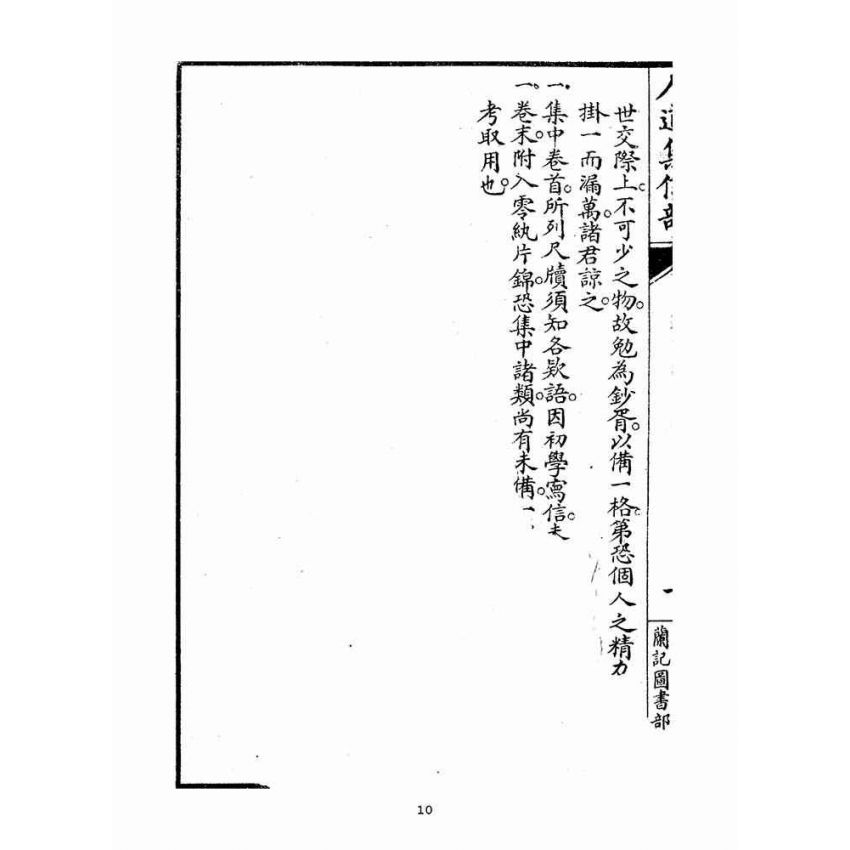 人道集信部
一
蘭記圖書部
世交際上。不可少之物。故勉為鈔胥。以備一格。第恐個人之精力
掛一而漏萬。諸君諒之。
一、集中卷首。所列尺牘須知各欵語。因初學寫信
一、卷末。附入零紈片錦。恐集中諸類。尚有未備。一
考取用也。
10